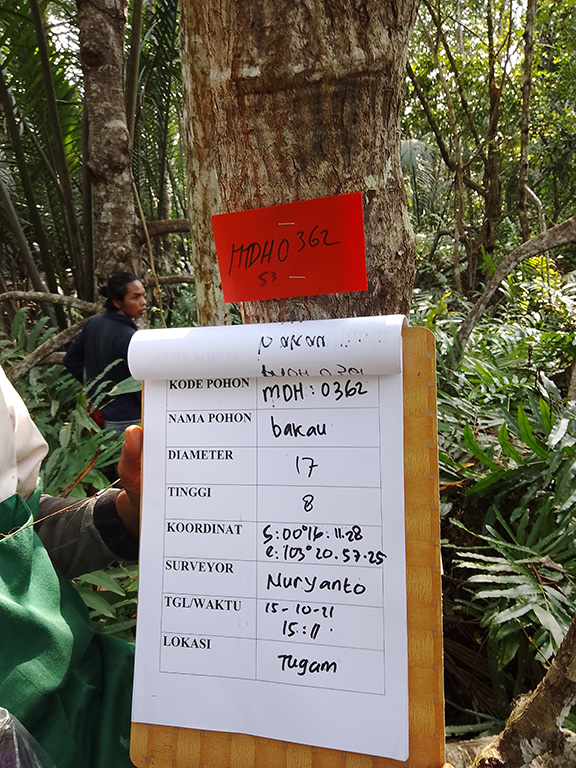 MDH0362
53
KODE POHON MDH: 0362
NAMA POHON bakau
DIAMETER 17
TINGGI 8
KOORDINAT S: 00°16.11.28
E: 103°20.57.25
SURVEYOR Nuryanto
TGL/WAKTU 15-10-21
15:11
LOKASI Tugam